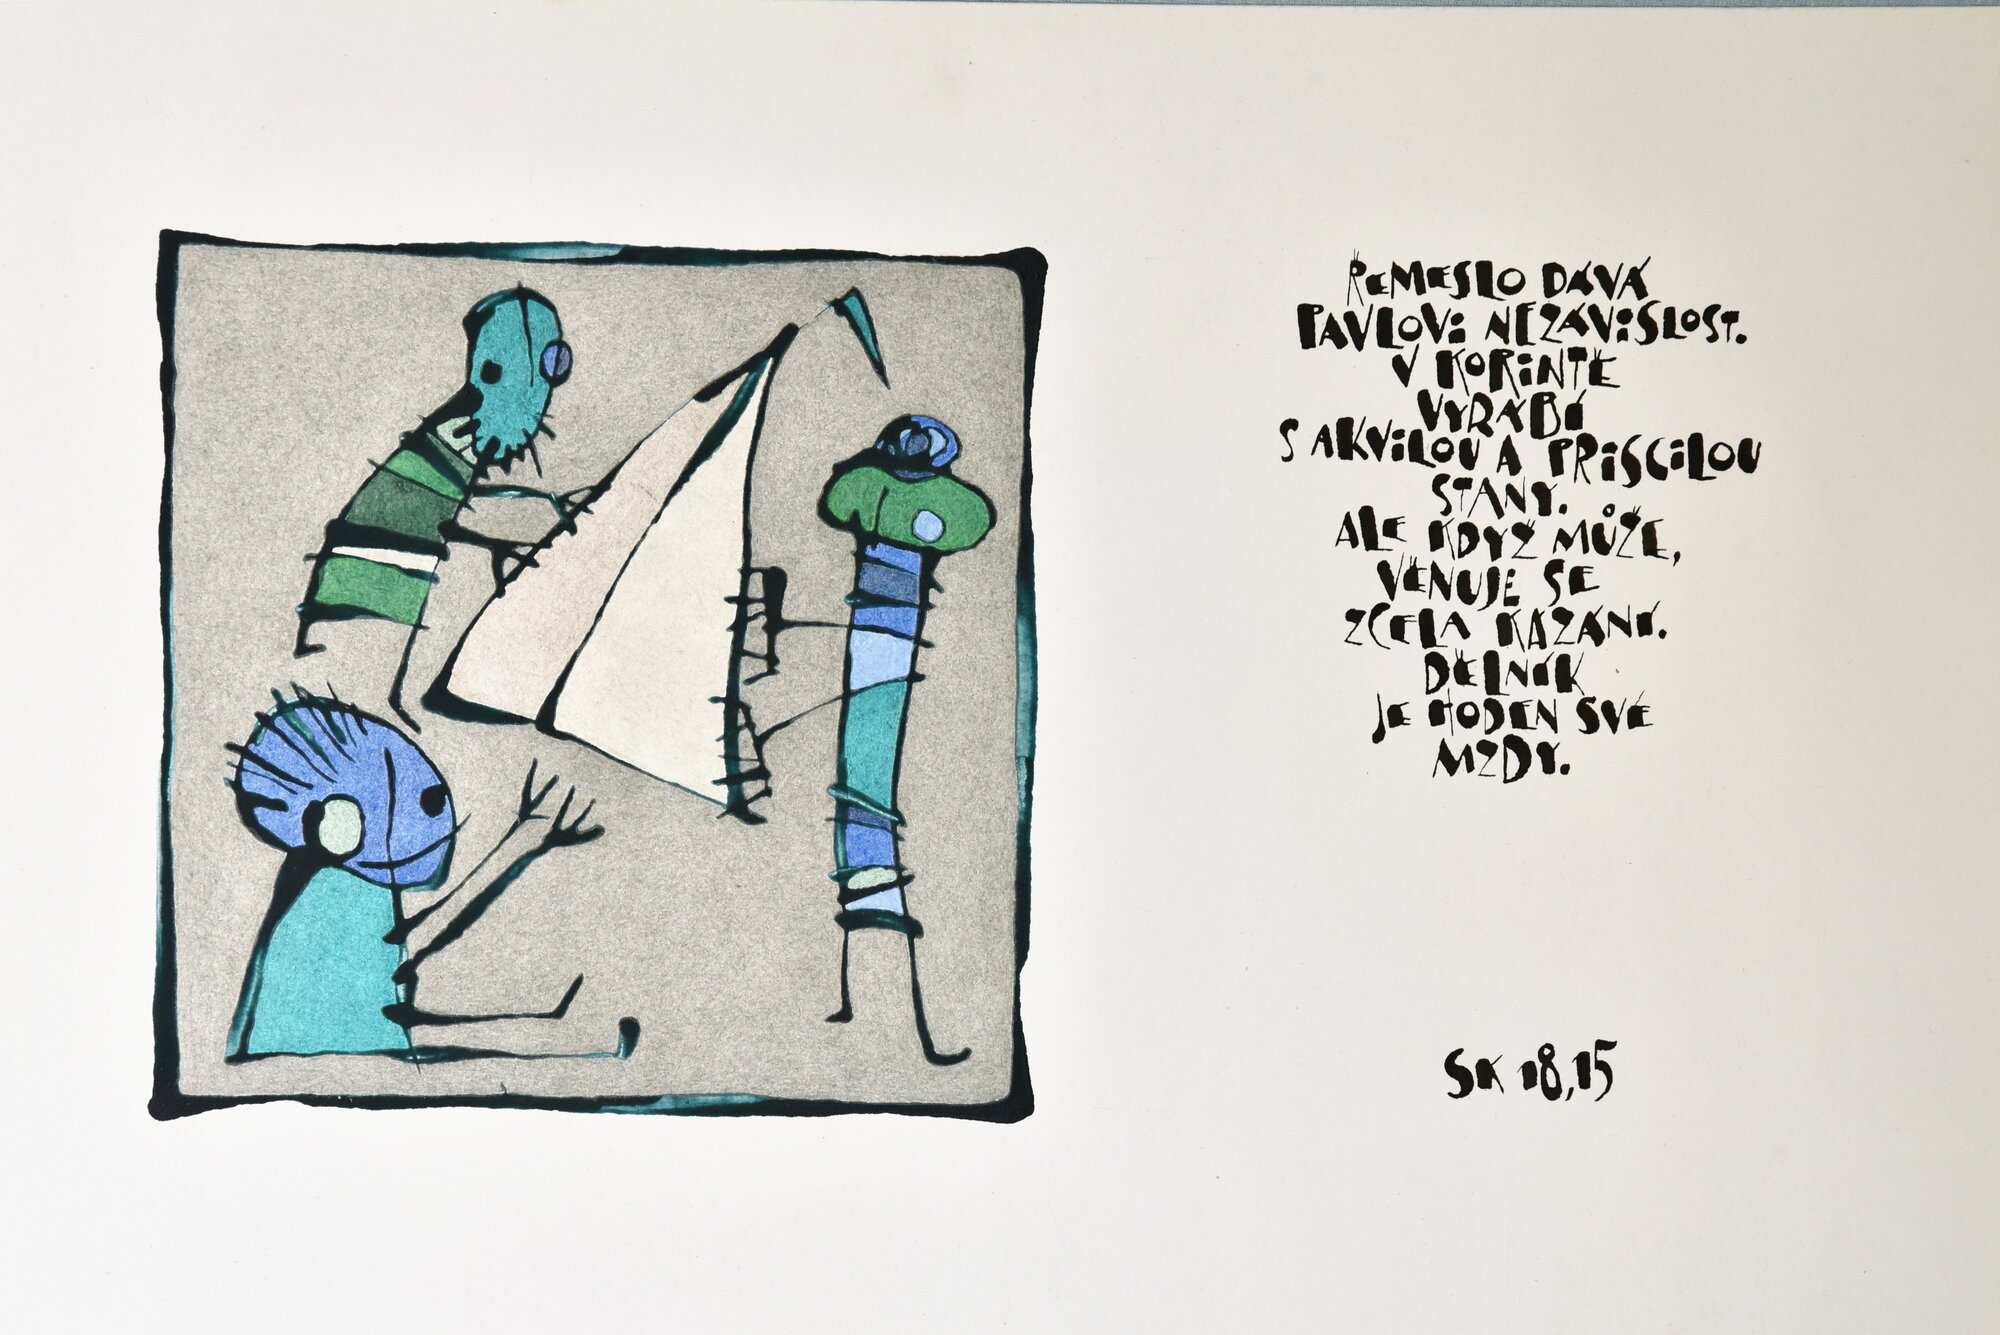 ŘEMESLO DÁVÁ
PAVLOVI NEZÁVISLOST.
V KORINTĚ
VYRÁBÍ
S AKVILOU A PRISCILOU
STANY.
ALE KDYŽ MŮŽE,
VĚNUJE SE
ZCELA KÁZÁNÍ.
DĚLNÍK
JE HODEN SVÉ
MZDY.
SK 18,15